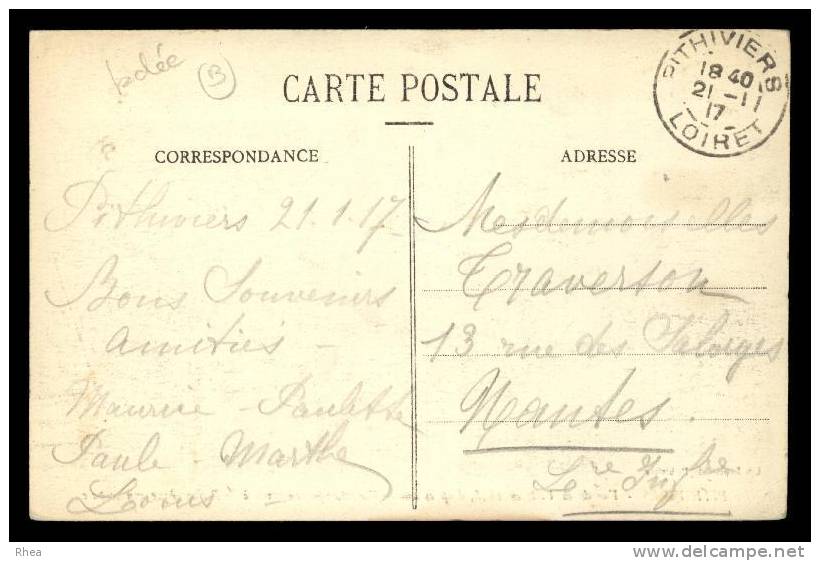 B
CARTE POSTALE
PITHIVIERS
18 40
21 - 11
17
LOIRET
CORRESPONDANCE
ADRESSE
Pithiviers 21.1.17
Bons Souvenirs
amitiés -
Maurice - Paulette
Paule - Marthe
Mesdemoiselles
Traverson
13 rue des Salorges
Nantes.
Lre Infre
Rhea
www.delcampe.net